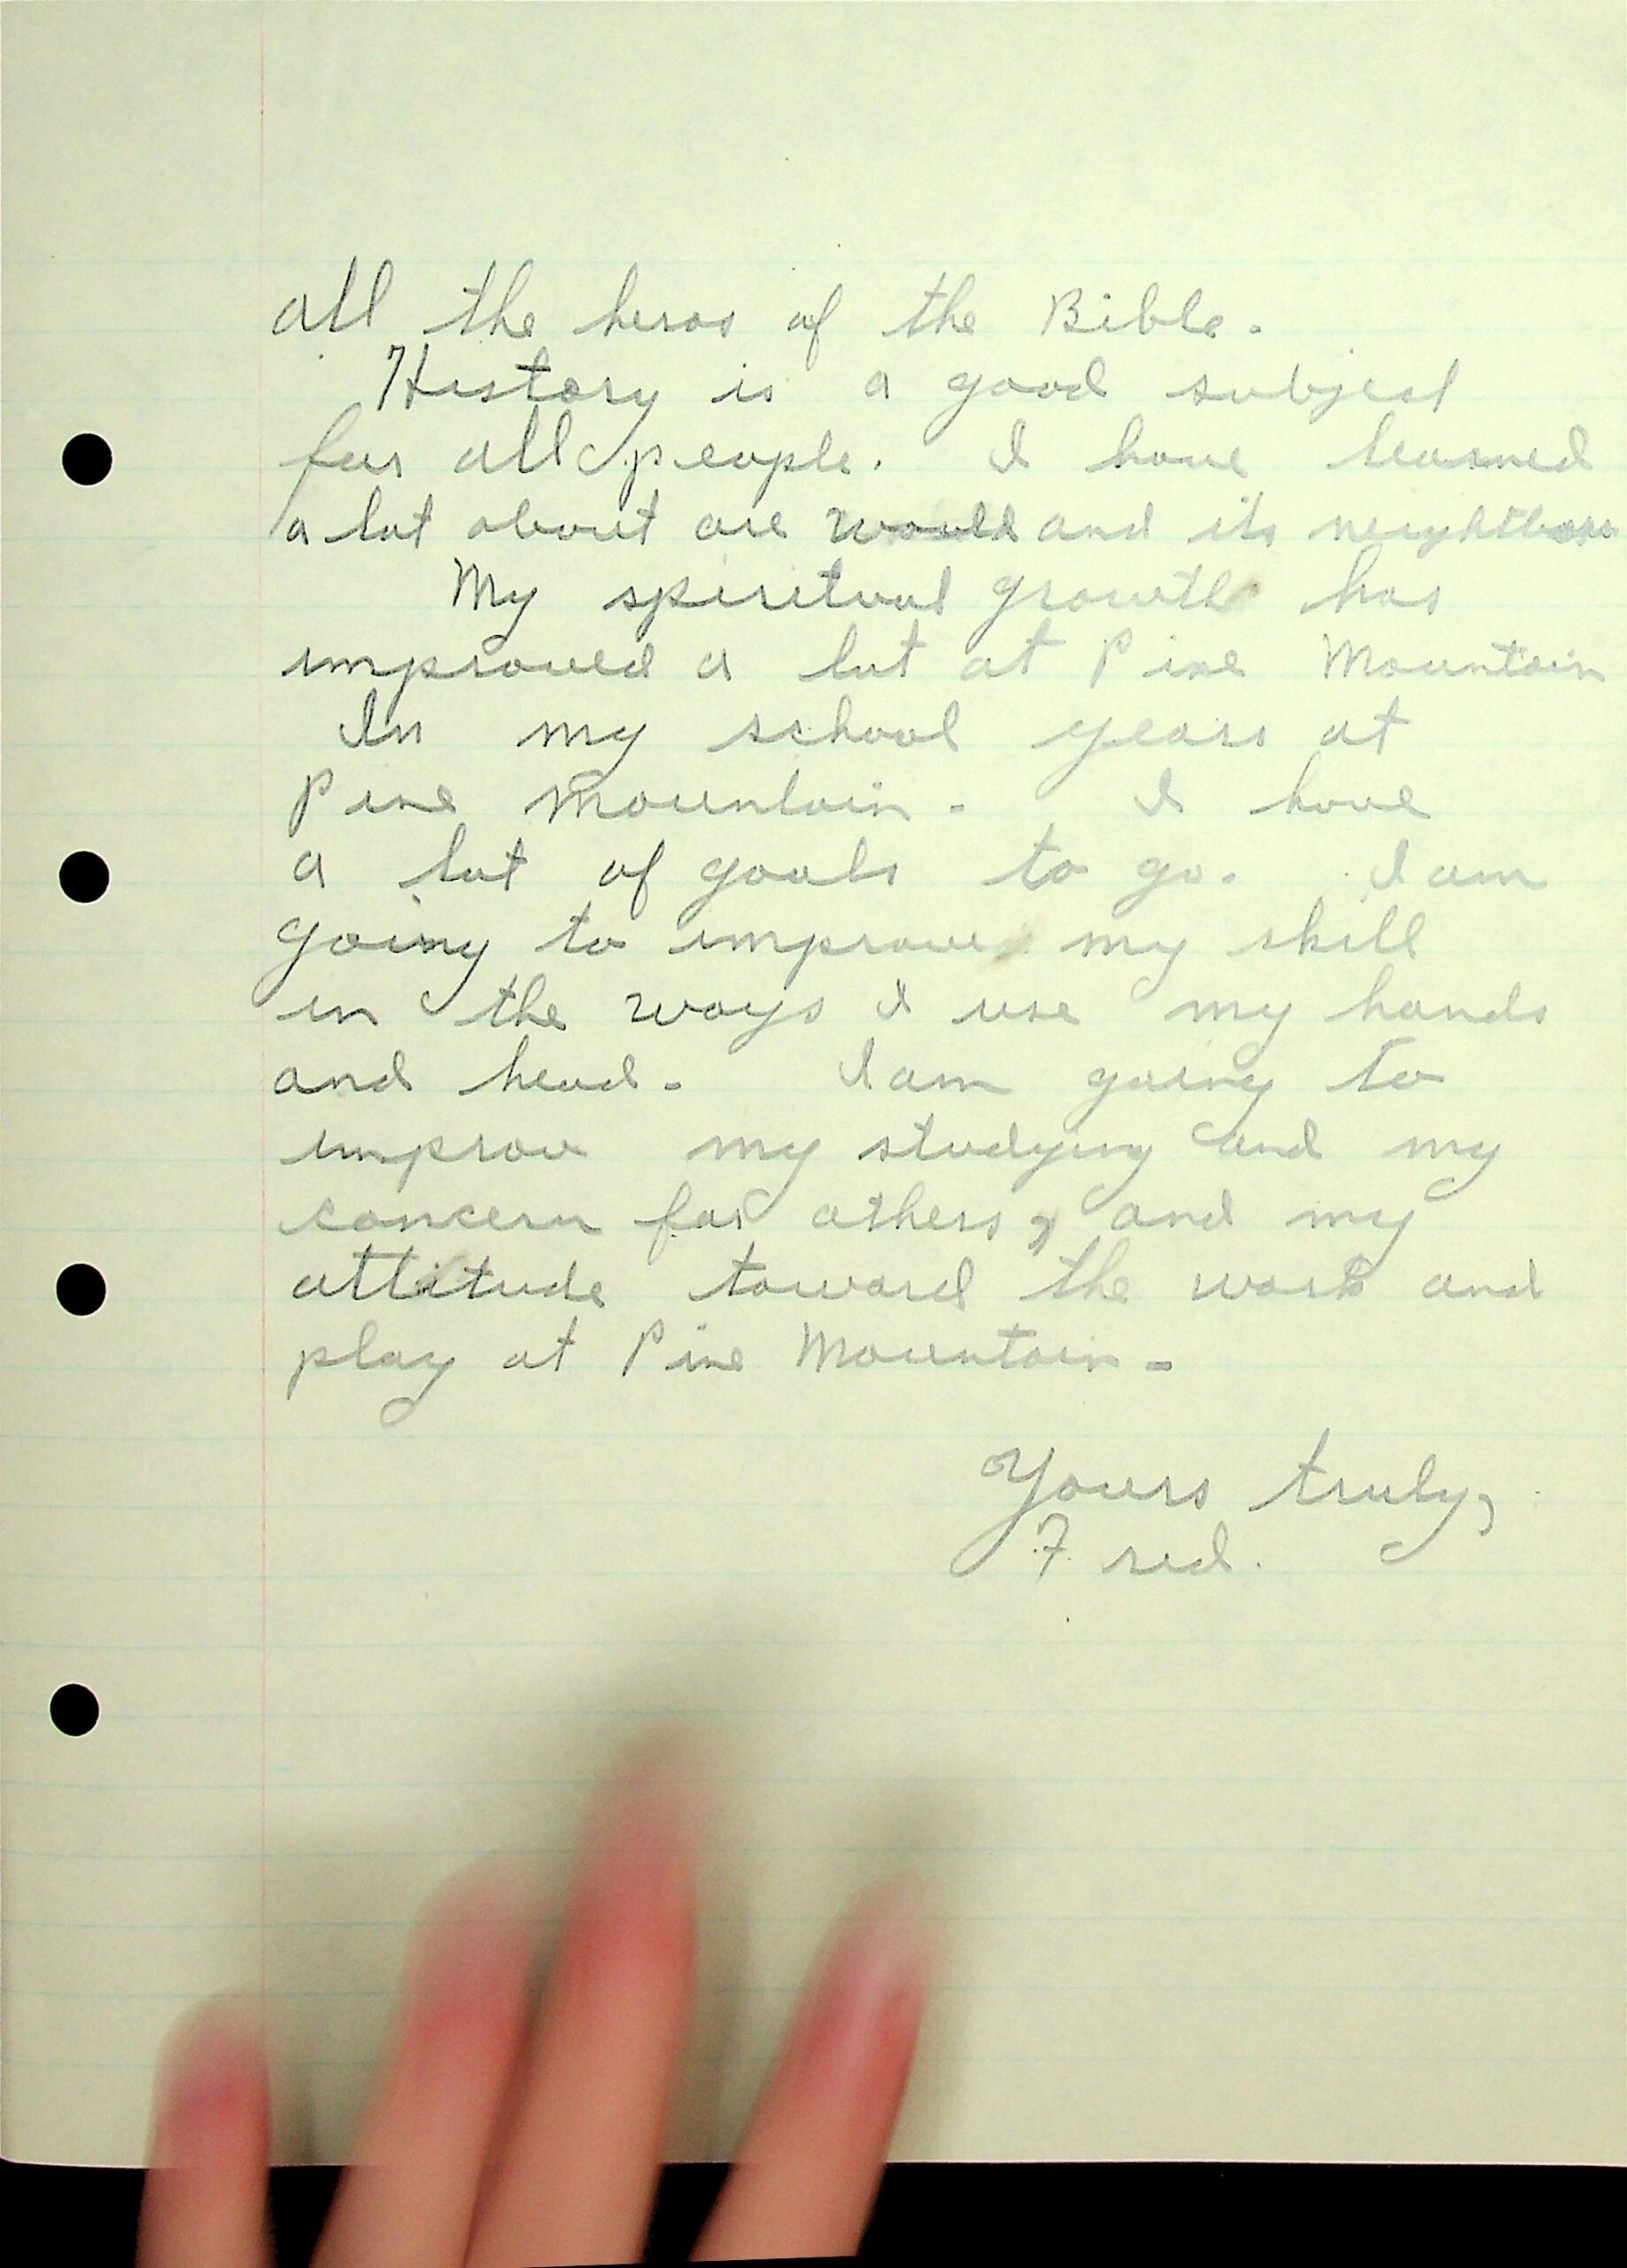 all the heros of the Bible.
History is a good subject
for all people. I have learned
a lot about are would and its neightbors
My spiritual growth has
improved a lot at Pine Mountain
In my school years at
Pine Mountain. I have
a lot of goals to go. I am
going to improve my skill
in the ways I use my hands
and head. I am going to
improv my studying and my
concern for others, and my
attitude toward the work and
play at Pine Mountain.
Yours truly,
Fred.